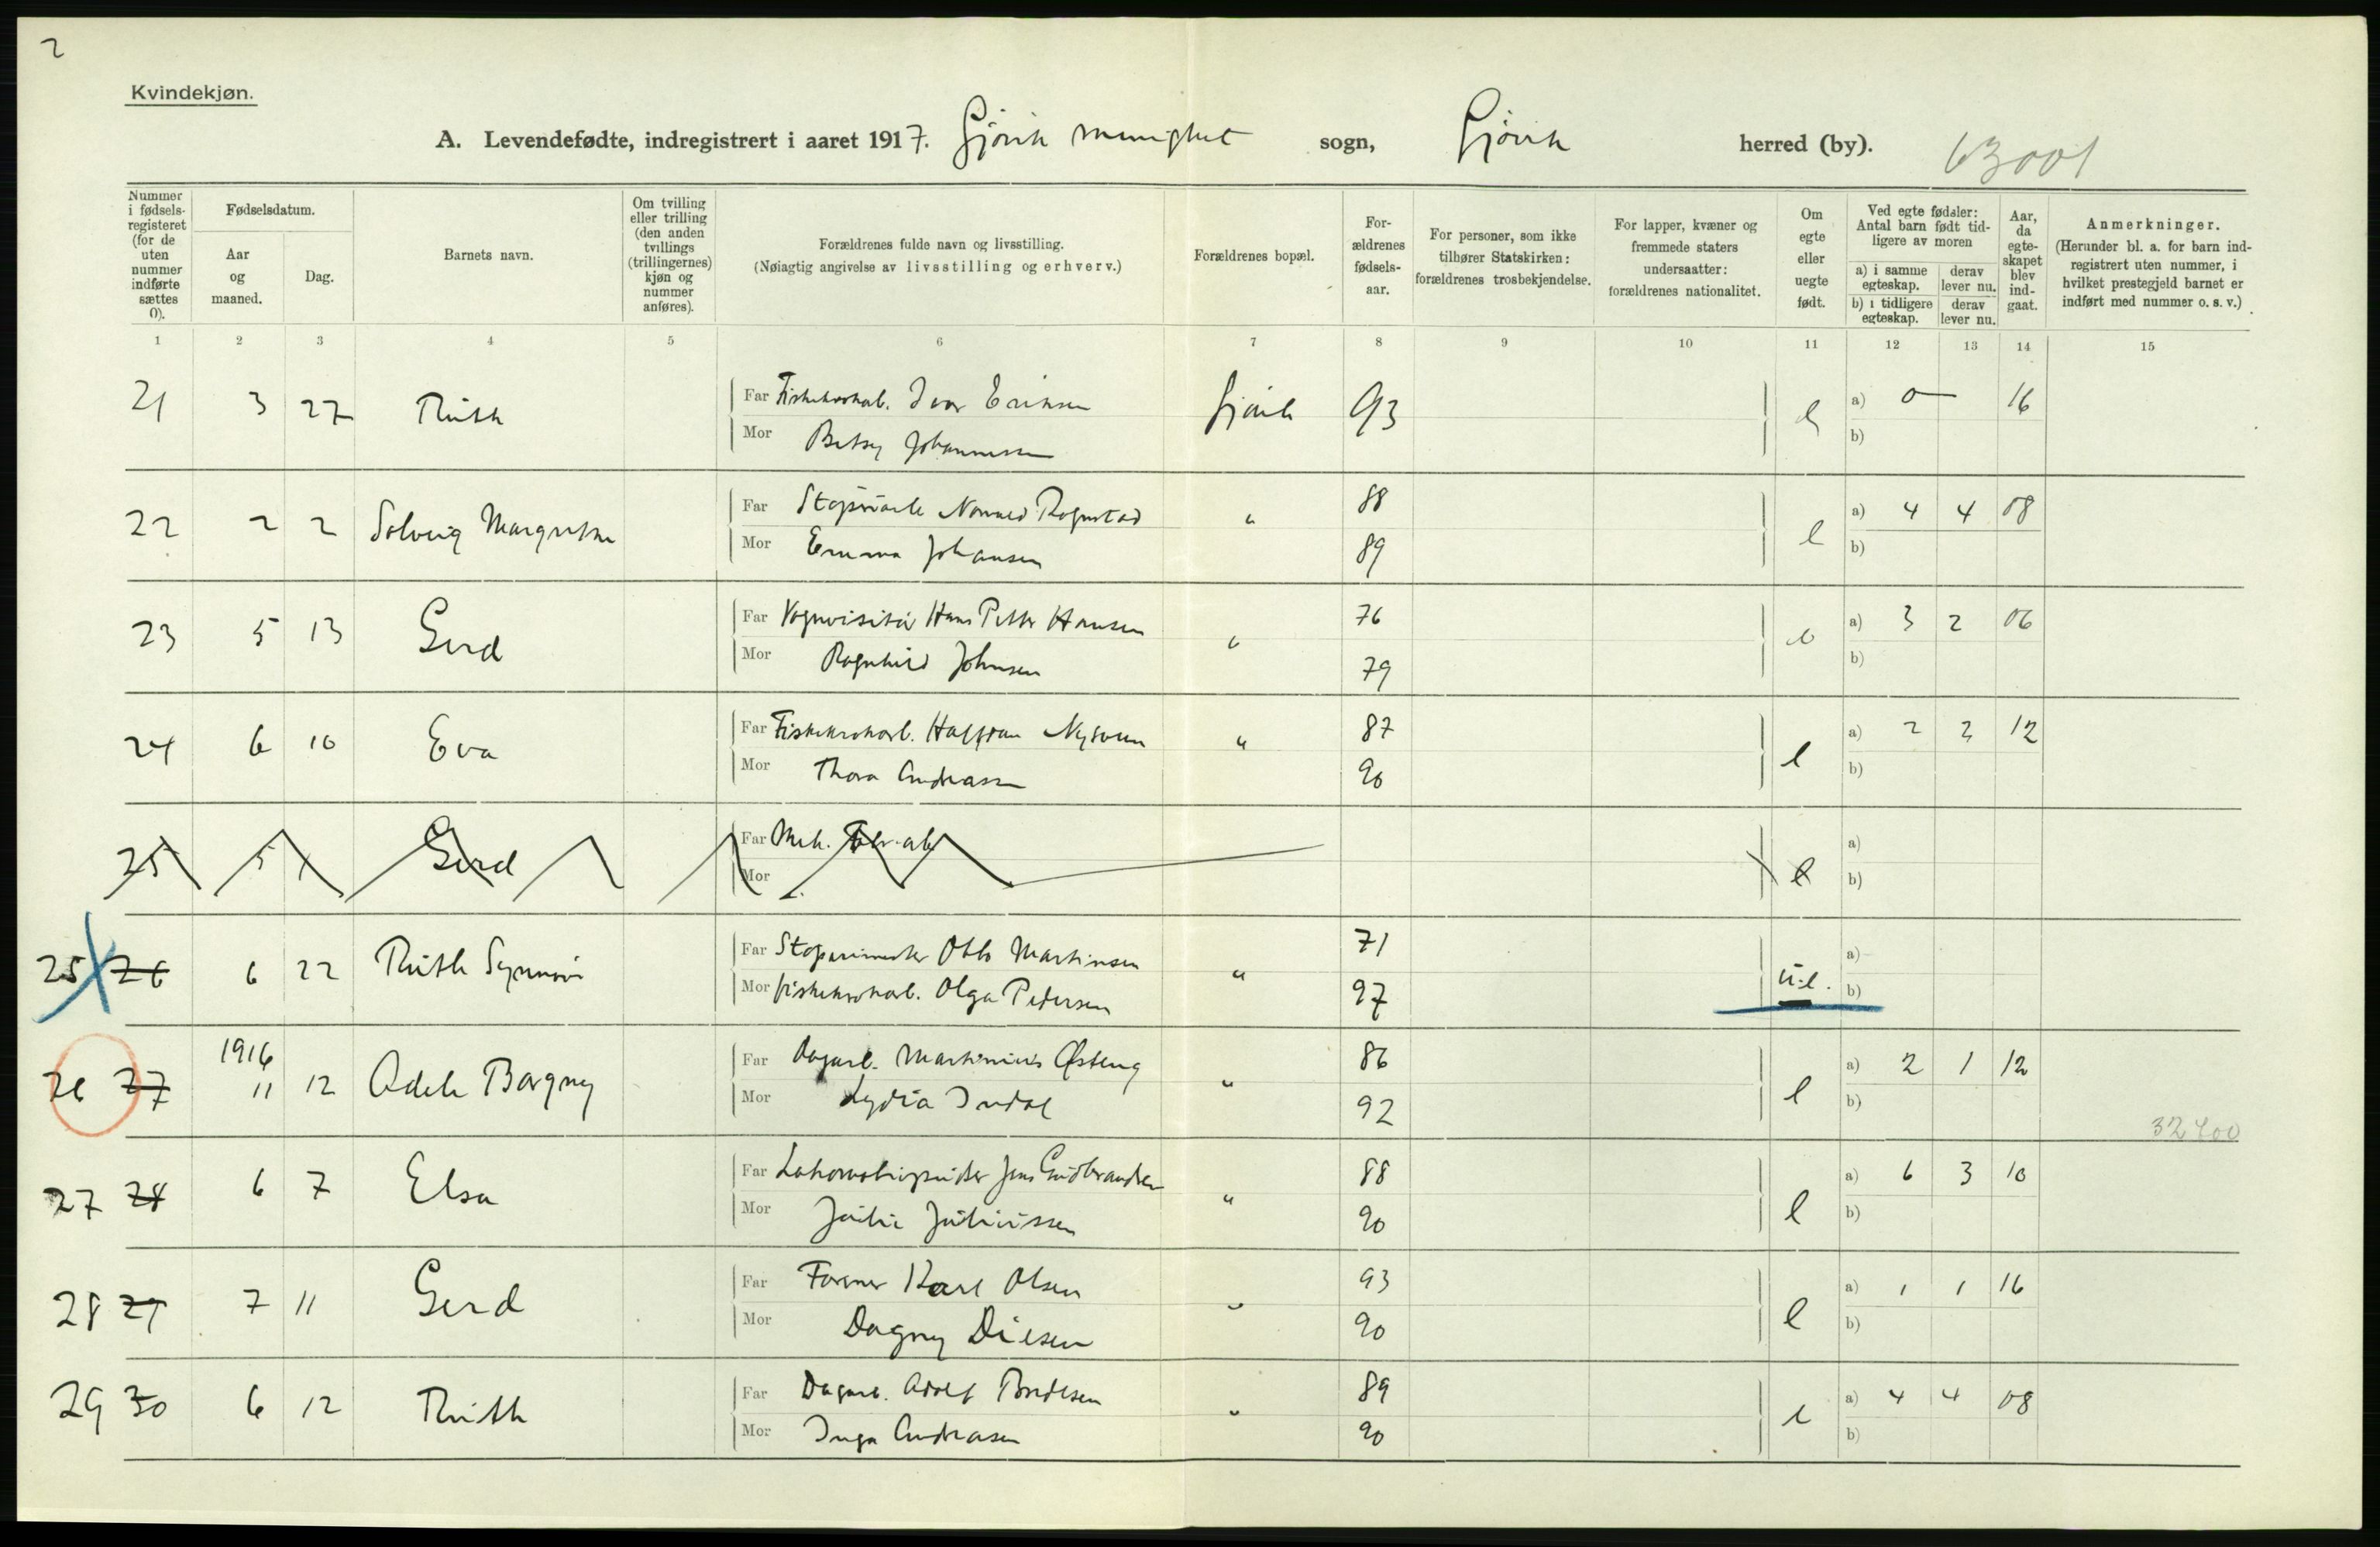 2
Kvindekjøn.
A. Levendefødte, indregistrert i aaret 1917. Gjøvik menighet sogn, Gjøvik herred (by). 63001
Nummer i fødsels-registeret (for de uten nummer indførte sættes 0).
Fødselsdatum.
Aar og maaned.
Dag.
Barnets navn.
Om tvilling eller trilling (den anden tvillings (trillingernes) kjøn og nummer anføres).
Forældrenes fulde navn og livsstilling.
(Nøiagtig angivelse av livsstilling og erhverv.)
Forældrenes bopæl.
For-ældrenes fødsels-aar.
For personer, som ikke tilhører Statskirken: forældrenes trosbekjendelse.
For lapper, kvæner og fremmede staters undersaatter: forældrenes nationalitet.
Om egte eller uegte født.
Ved egte fødsler: Antal barn født tid-ligere av moren
a) i samme egteskap.
derav lever nu.
b) i tidligere egteskap.
derav lever nu.
Aar, da egte-skapet blev ind-gaat.
Anmerkninger.
(Herunder bl. a. for barn ind-registrert uten nummer, i hvilket prestegjeld barnet er indført med nummer o. s. v.)
1 2 3 4 5 6 7 8 9 10 11 12 13 14 15
21 3 27 Ruth Far Ivar Eriksen Gjøvik 93 e a) 0 16
Mor Betsy Johannessen b)
22 2 2 Solveig Margrethe Far Rognstad " 88 e a) 4 4 08
Mor Emma Johansen 89 b)
23 5 13 Gerd Far Vognvisitør Hans Petter Hansen " 76 e a) 3 2 06
Mor Ragnhild Johnsen 79 b)
24 6 10 Eva Far Halfdan " 87 e a) 2 2 12
Mor Thora Andreassen 90 b)
25 5 Gerd Far Mek. e a)
Mor b)
25 26 6 22 Ruth Synnøve Far Otto Martinsen " 71 u.e. a)
Mor Olga Pedersen 97 b)
26 27 1916 11 12 Adele Borgny Far Dagarb. Martinius Østeng " 86 e a) 2 1 12
Mor Lydia Indal 92 b)
32400
27 28 6 7 Elsa Far Lokomotivpudser Jens Gudbrandsen " 88 e a) 6 3 10
Mor Julie Juliussen 90 b)
28 29 7 11 Gerd Far Former Karl Olsen " 93 e a) 1 1 16
Mor Dagny Dilsen 90 b)
29 30 6 12 Ruth Far Dagarb. Adolf " 89 e a) 4 4 08
Mor Inga Andreasen 90 b)